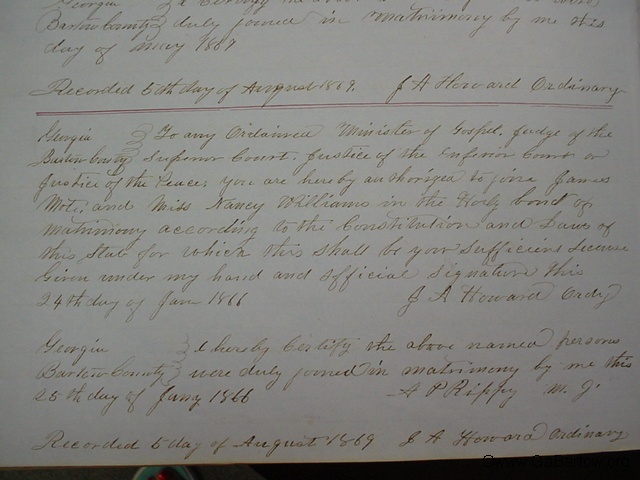 Georgia
Bartow County duly joined in matrimony by me this
day of May 1869
Recorded 5th day of August 1869. J A Howard Ordinary
Georgia To any Ordained Minister of Gospel, Judge of the
Bartow County Superior Court, Justice of the Inferior Court or
Justice of the Peace, you are hereby authorized to join James
Mote, and Miss Nancy Williams in the Holy bond of
matrimony according to the Constitution and Laws of
this State for which this shall be your sufficient License
Given under my hand and official signature this
24th day of Jan 1866 J A Howard Ordy
Georgia I hereby Certify the above named persons
Bartow County were duly joined in matrimony by me this
25th day of Jany 1866 A P Rippy M. J.
Recorded 5 day of August 1869 J A Howard Ordinary